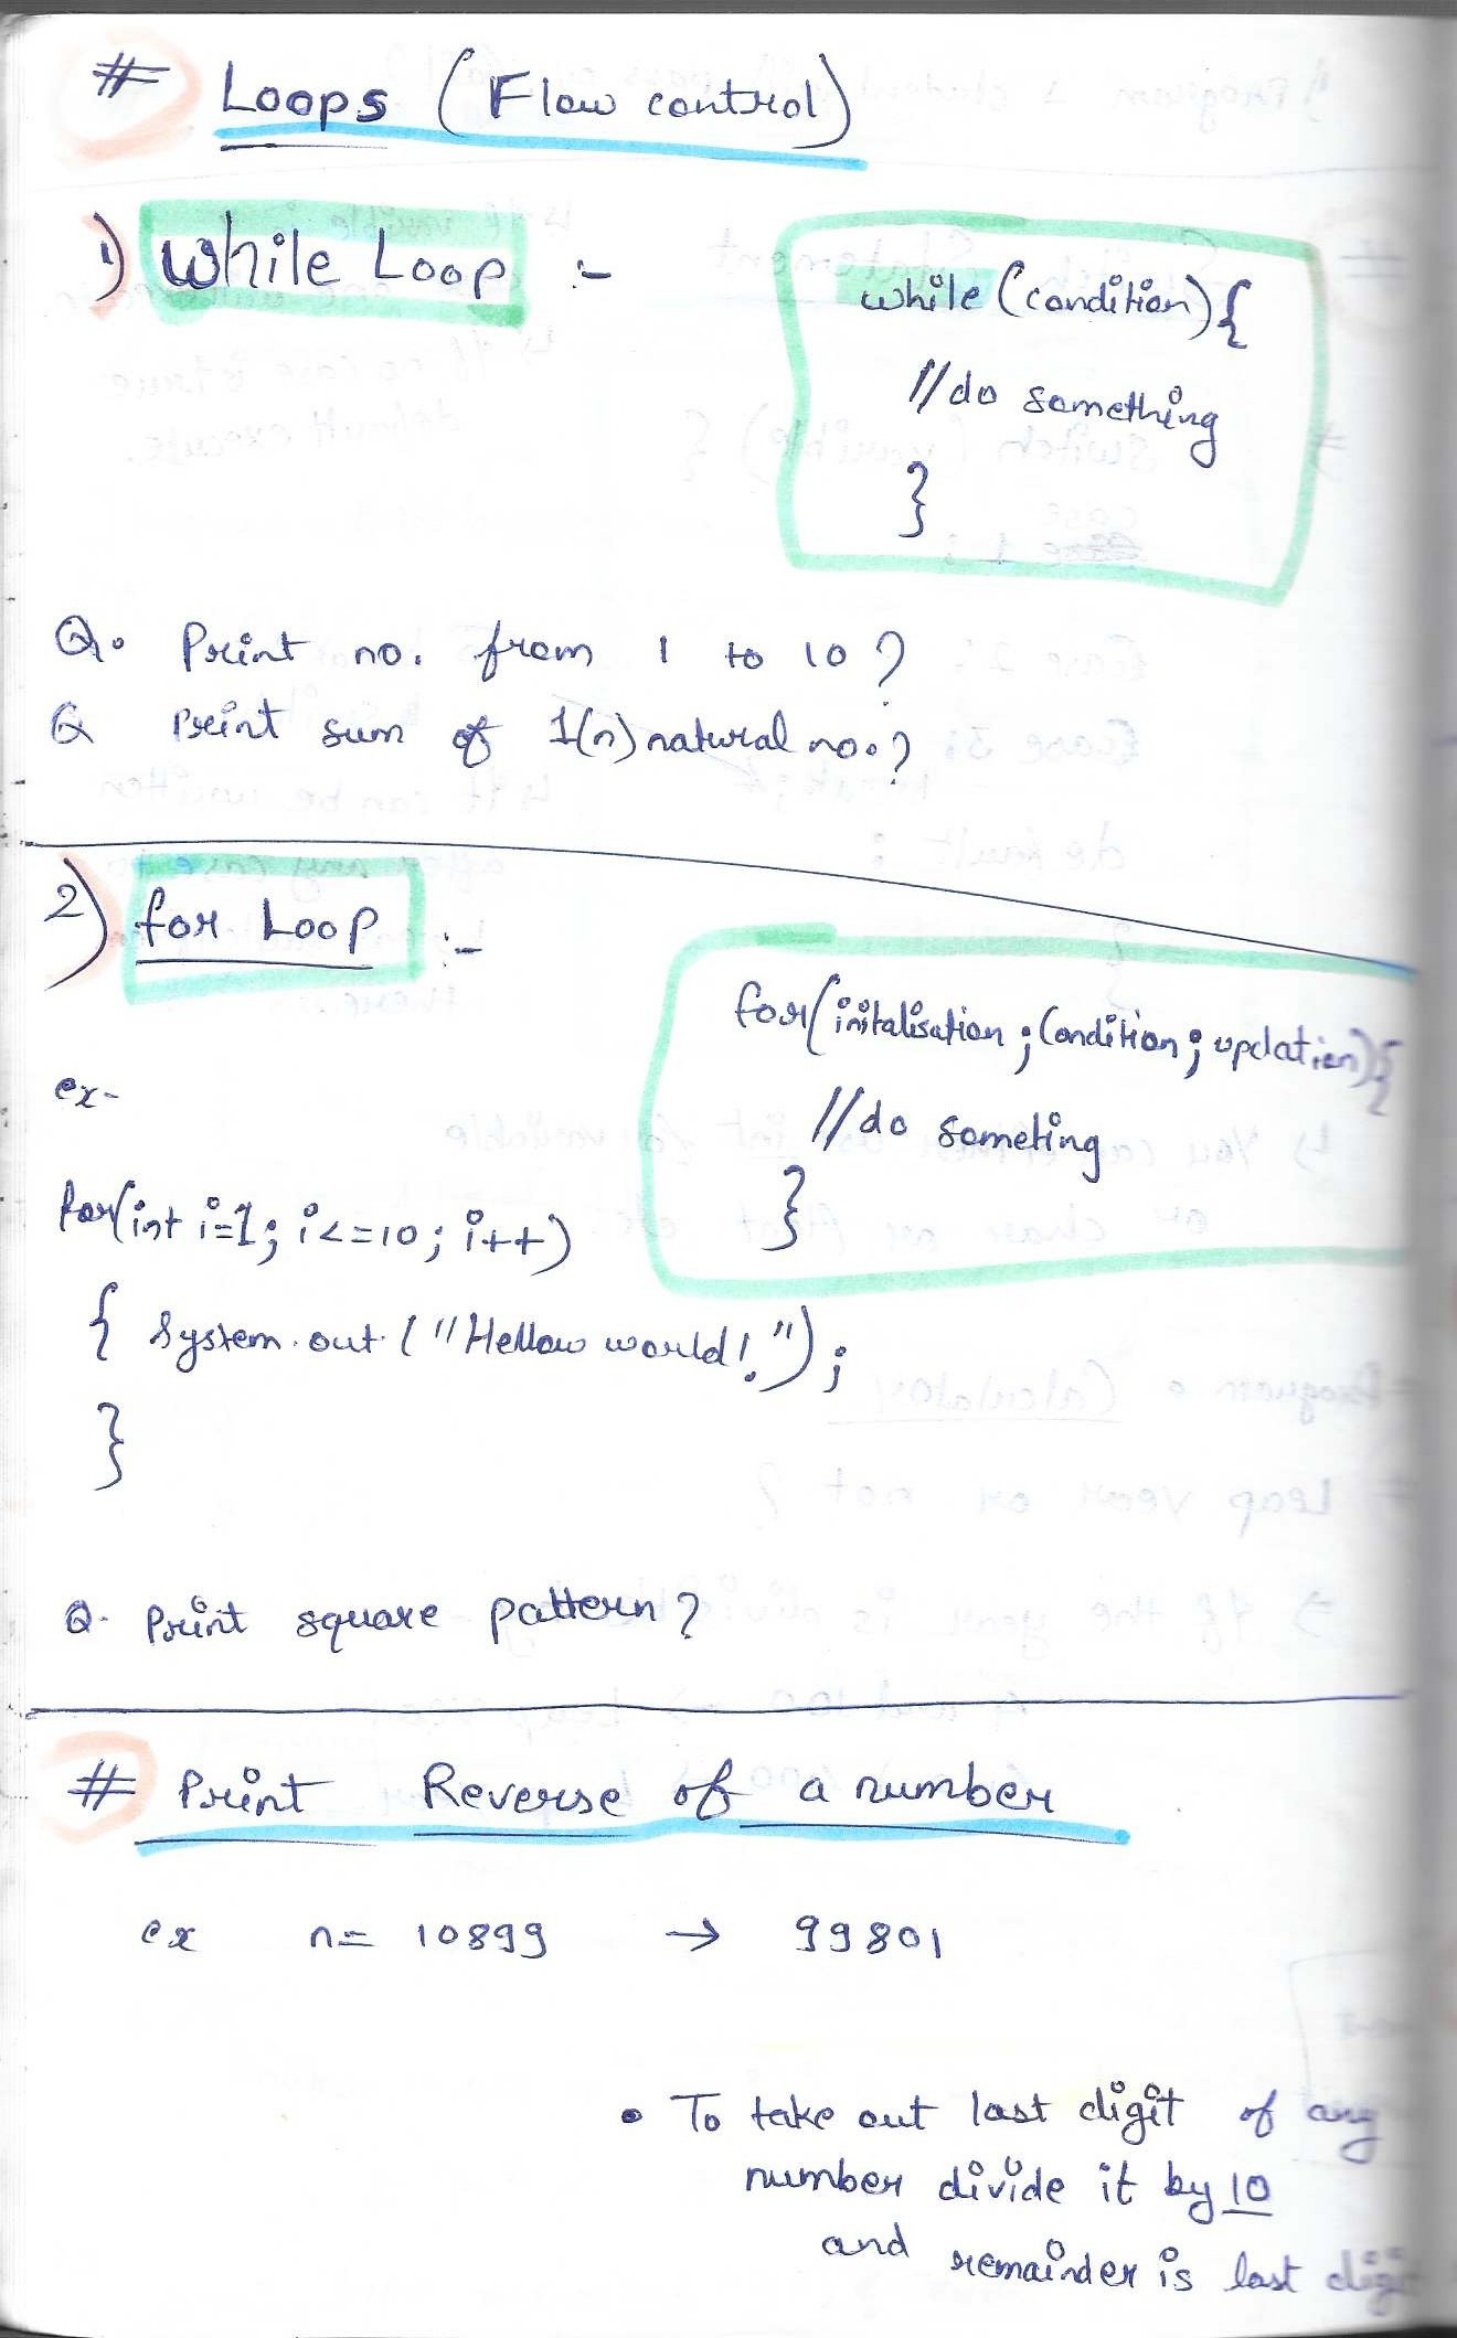 # Loops (Flow control)
1) While Loop :-
while (condition) {
//do something
}
Q. Print no. from 1 to 10 ?
Q Print sum of 1(n) natural no. ?
2) for Loop :-
for(initalisation ; Condition ; updation) {
//do someting
}
ex-
for(int i=1; i<=10; i++)
{ System.out ("Hellow world!");
}
Q. Print square pattern ?
# Print Reverse of a number
ex n= 10899 → 99801
• To take out last digit of any
number divide it by 10
and remainder is last digit